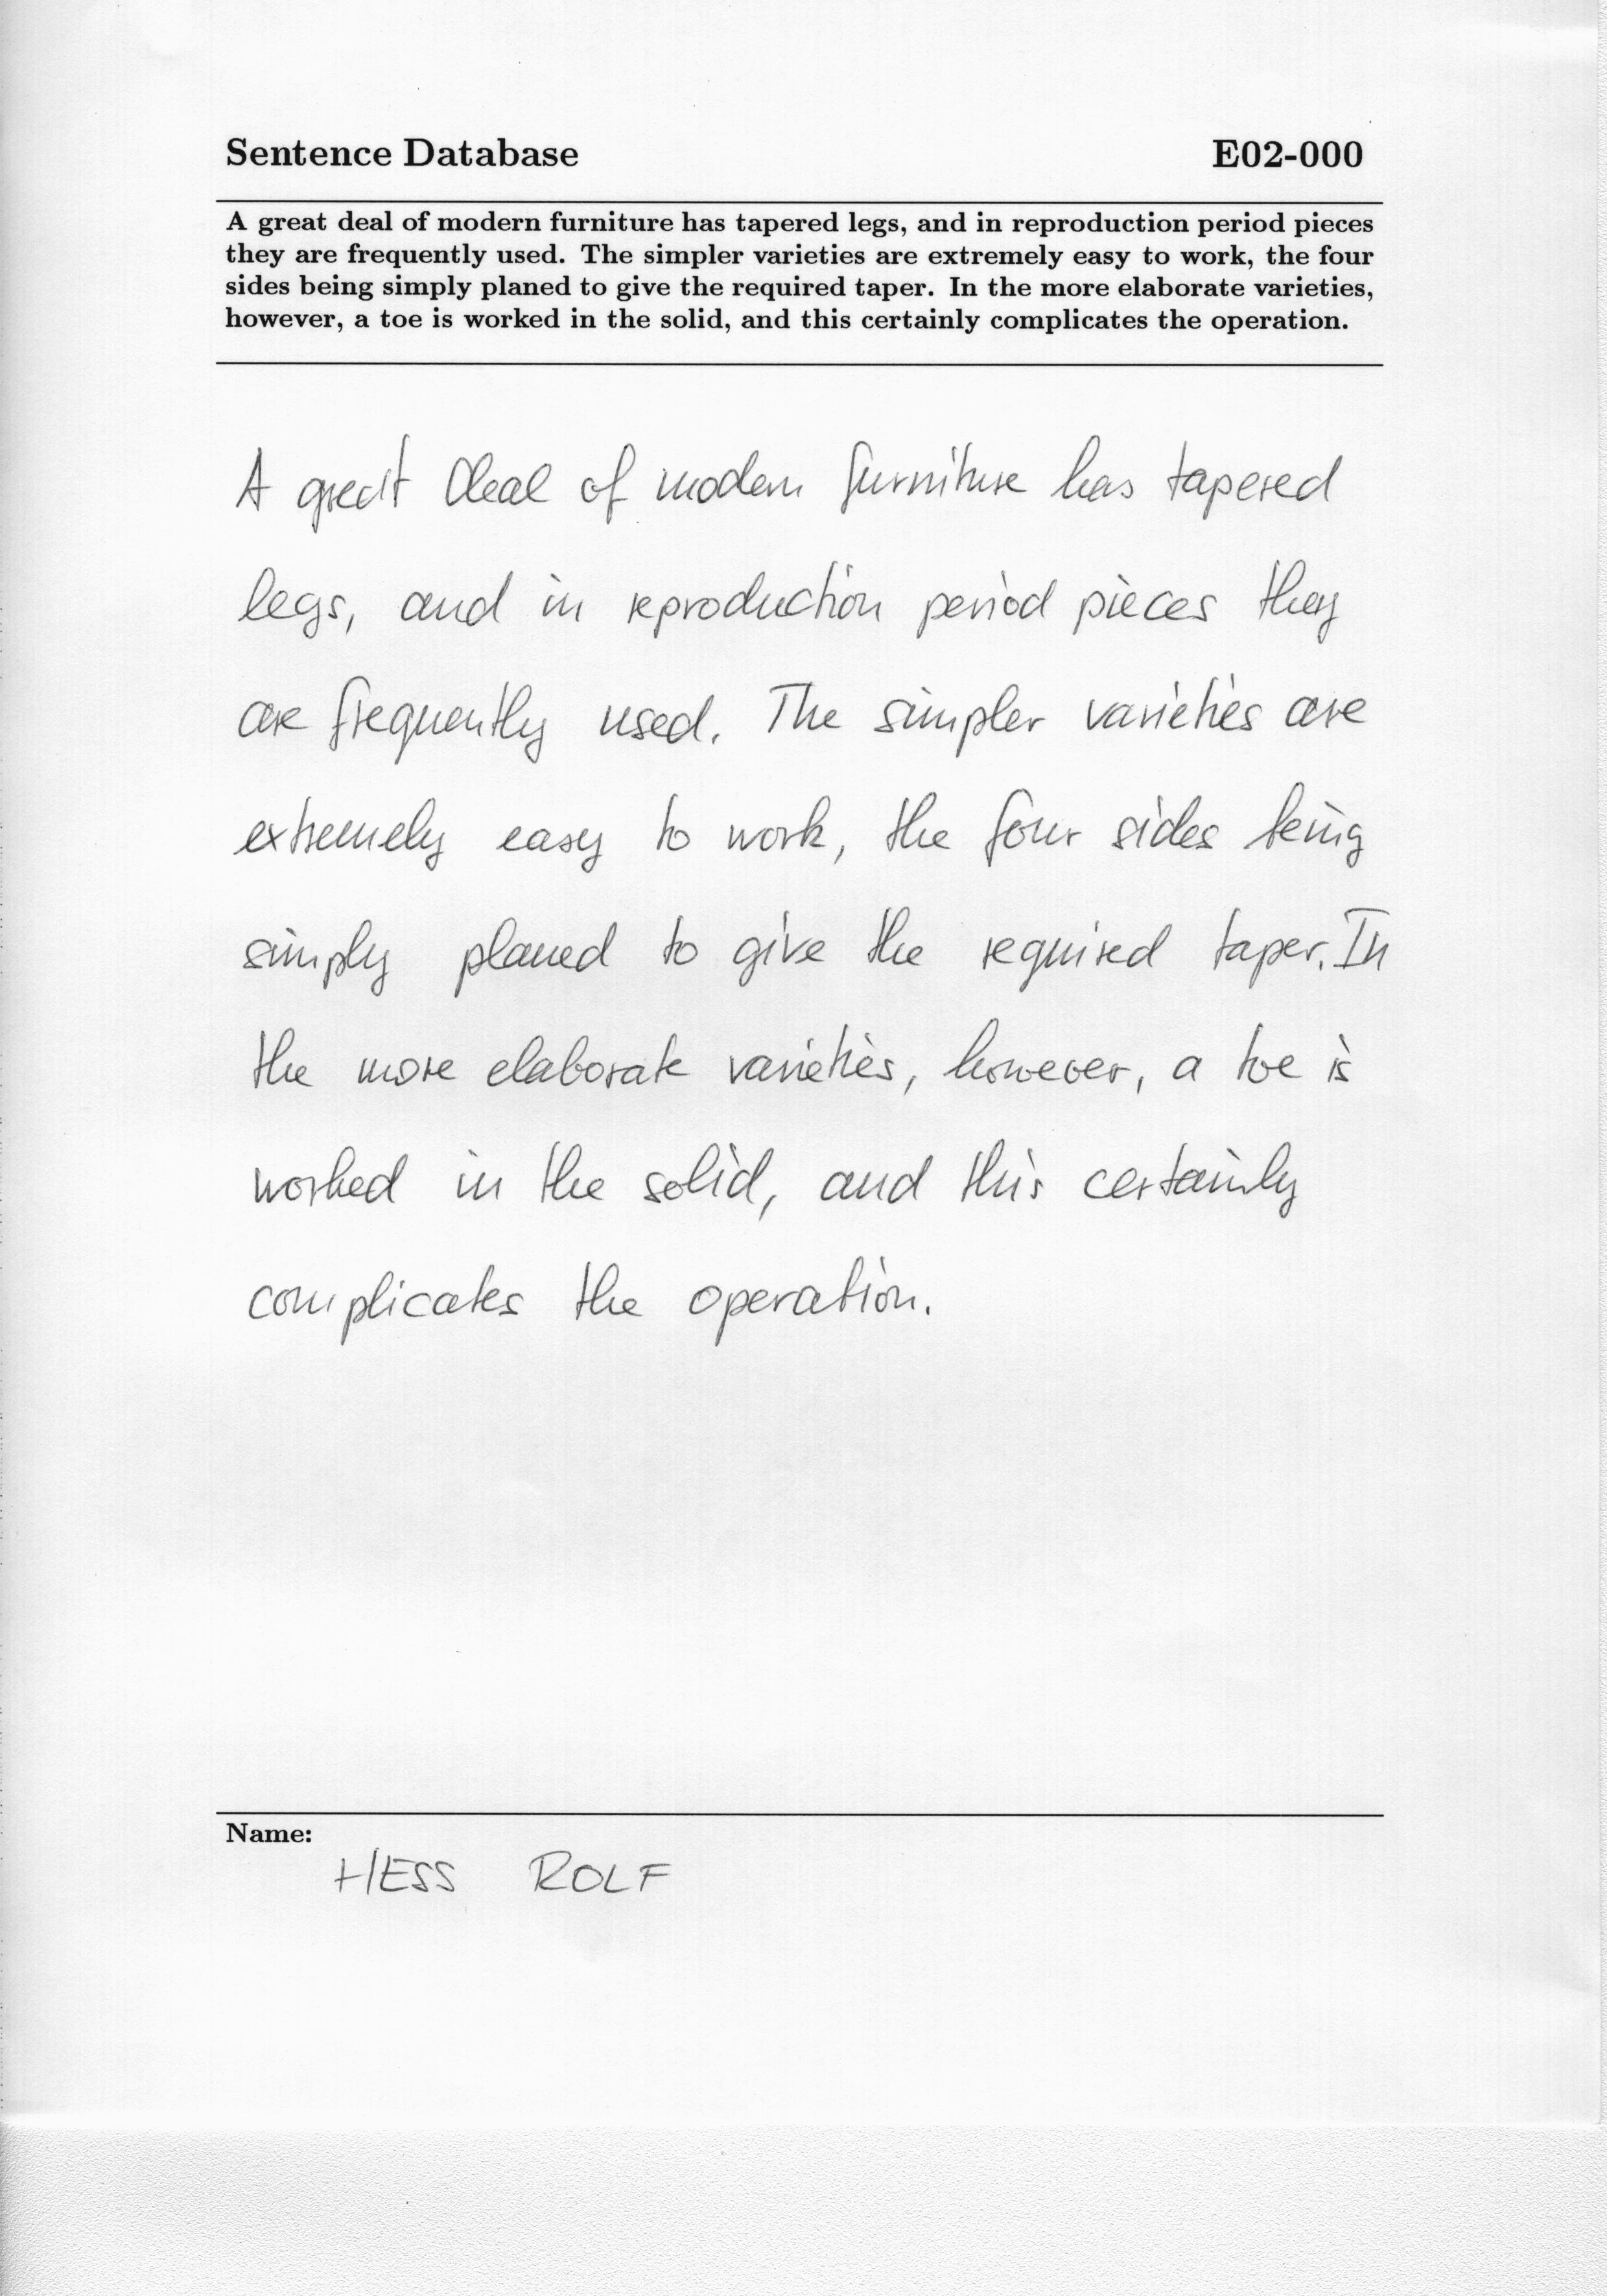 Sentence Database E02-000
A great deal of modern furniture has tapered legs, and in reproduction period pieces
they are frequently used. The simpler varieties are extremely easy to work, the four
sides being simply planed to give the required taper. In the more elaborate varieties,
however, a toe is worked in the solid, and this certainly complicates the operation.
A great deal of modern furniture has tapered
legs, and in reproduction period pieces they
are frequently used. The simpler varieties are
extremely easy to work, the four sides being
simply planed to give the required taper. In
the more elaborate varieties, however, a toe is
worked in the solid, and this certainly
complicates the operation.
Name:
HESS ROLF